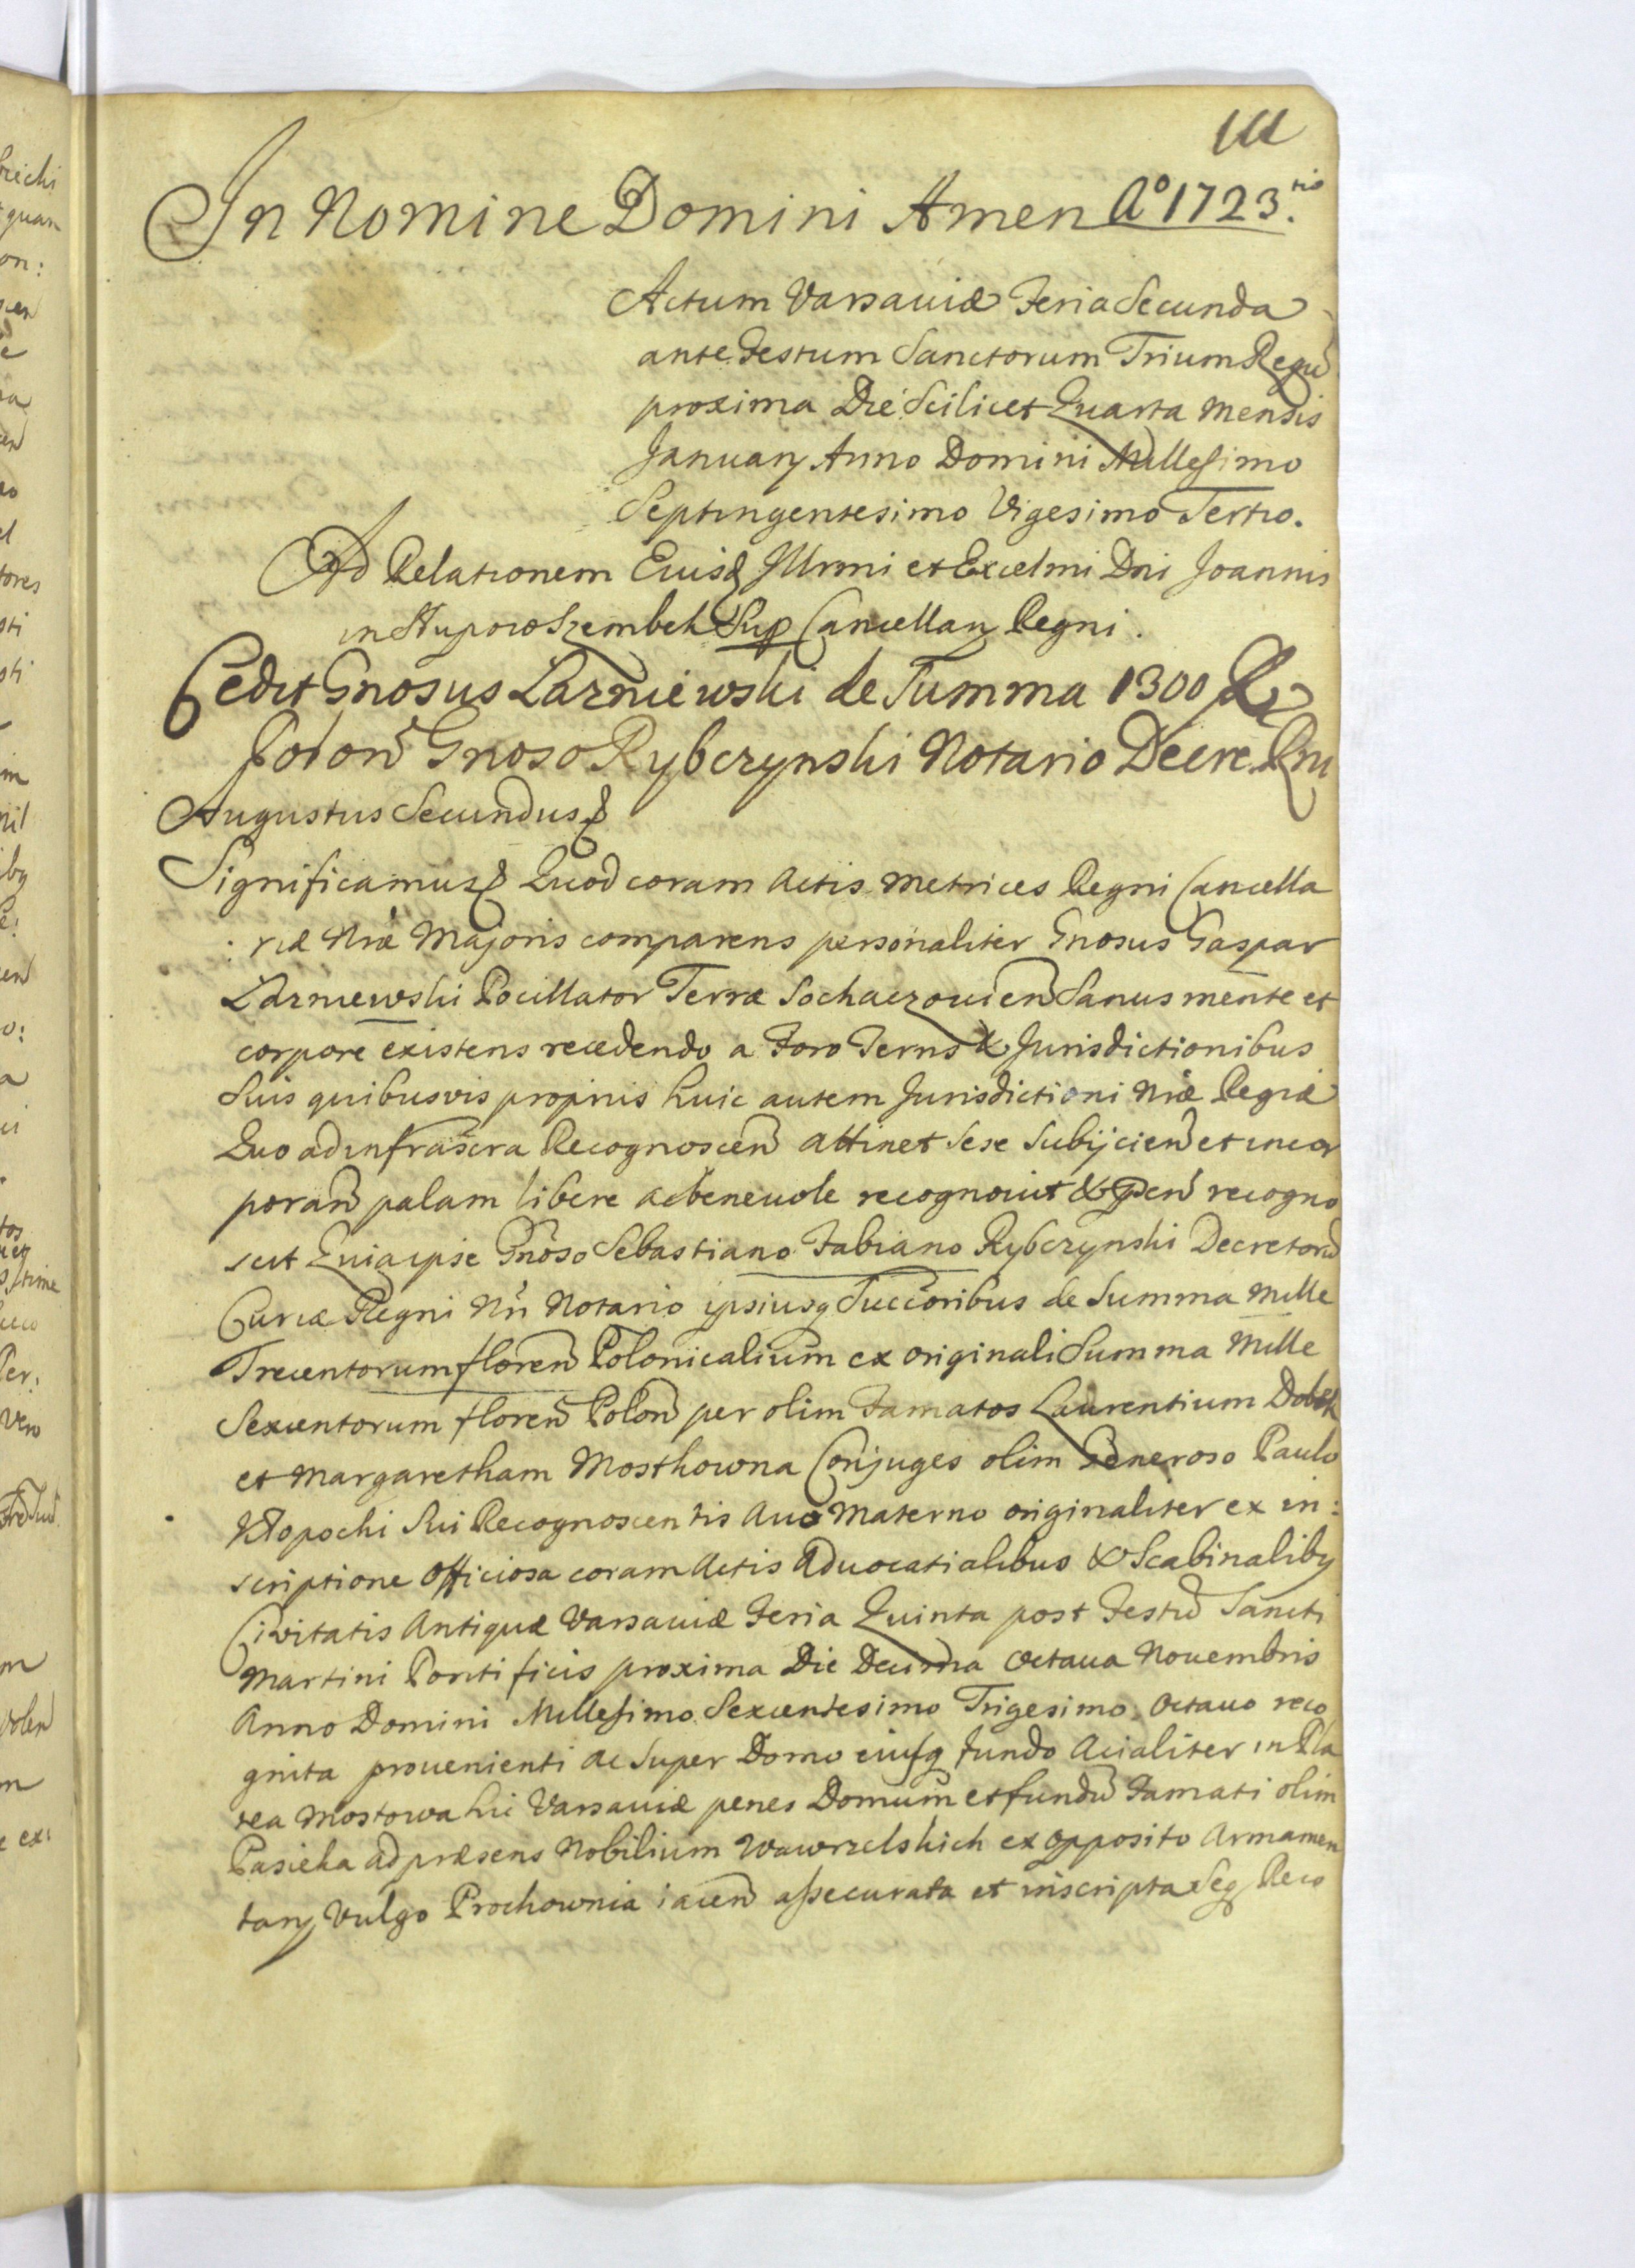 111
In Nomine Domini Amen Aº 1723.tio
Actum Varsaviæ Feria Secunda
ante Festum Sanctorum Trium Regũ
proxima Die Scilicet Quarta Mensis
Januarij Anno Domini Millesimo
Septingentesimo Vigesimo Tertio.
Ad Relationem Eiusd Illrmi et Excelmi Dni Joannis
in Słupow Szembek Sup Cancellarij Regni.
Cedit Gnosus Łazniewski de Summa 1300 fl
Polon̄ Gnoso Rybczynski Notario Decre. Rni
Augustus Secundus
Significamus Quod coram Actis Metrices Regni Cancella
: riæ Nræ Majoris comparens personaliter Gnosus Gaspar
Łazniewski Pocillator Terræ Sochaczovien̄ Sanus mente et
corpore existens recedendo a Foro Terris & Jurisdictionibus
Suis quibusvis proprijs huic autem Jurisdictioni Nræ Regiæ
Quo ad infrascra Recognoscen̄ attinet Sese Subijcien̄ et incor
poran̄ palam libere ac benevole recognovit & pen̄ recogno
scit Quia ipse Gnoso Sebastiano Fabiano Rybczynski Decretorũ
Curiæ Regni Nri Notario ipsiusq Succoribus de Summa Mille
Trecentorum floren̄ Polonicalium ex originali Summa Mille
Sexcentorum floren̄ Polon̄ per olim Famatos Laurentium Dobek
et Margaretham Mostkowna Conjuges olim Generoso Paulo
Kłopocki Sui Recognoscentis Avo Materno originaliter ex in:
scriptione officiosa coram Actis Advocatialibus & Scabinalibq
Civitatis Antiquæ Varsaviæ Feria Quinta post Festũ Sancti
Martini Pontificis proxima Die Decima Octava Novembris
Anno Domini Millesimo Sexcentesimo Trigesimo Octavo reco
gnita provenienti ac Super Domo eiusq fundo Acialiter in Pla
tea Mostowa hic Varsaviæ penes Domum et fundũ Famati olim
Pasieka ad præsens Nobilium Wawrzelskich ex opposito Armamen
tarij Vulgo Prochownia iacen̄ assecurata et inscripta Seq Reco